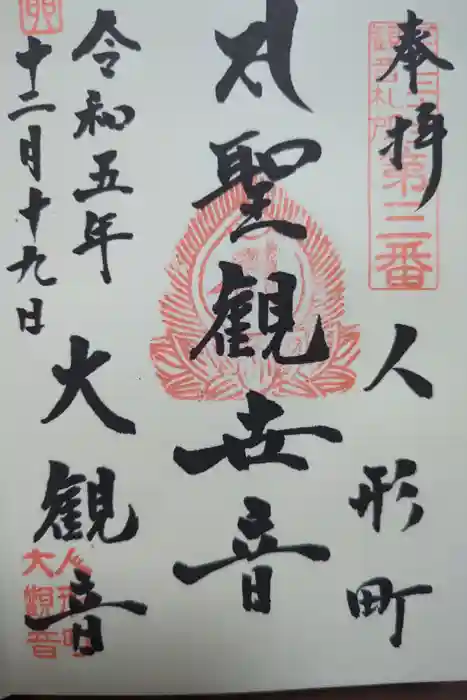 奉拝
人形町
観音札所
第三番
聖観世音
大観音
人形町
大観音
令和五年
十二月十九日
卯